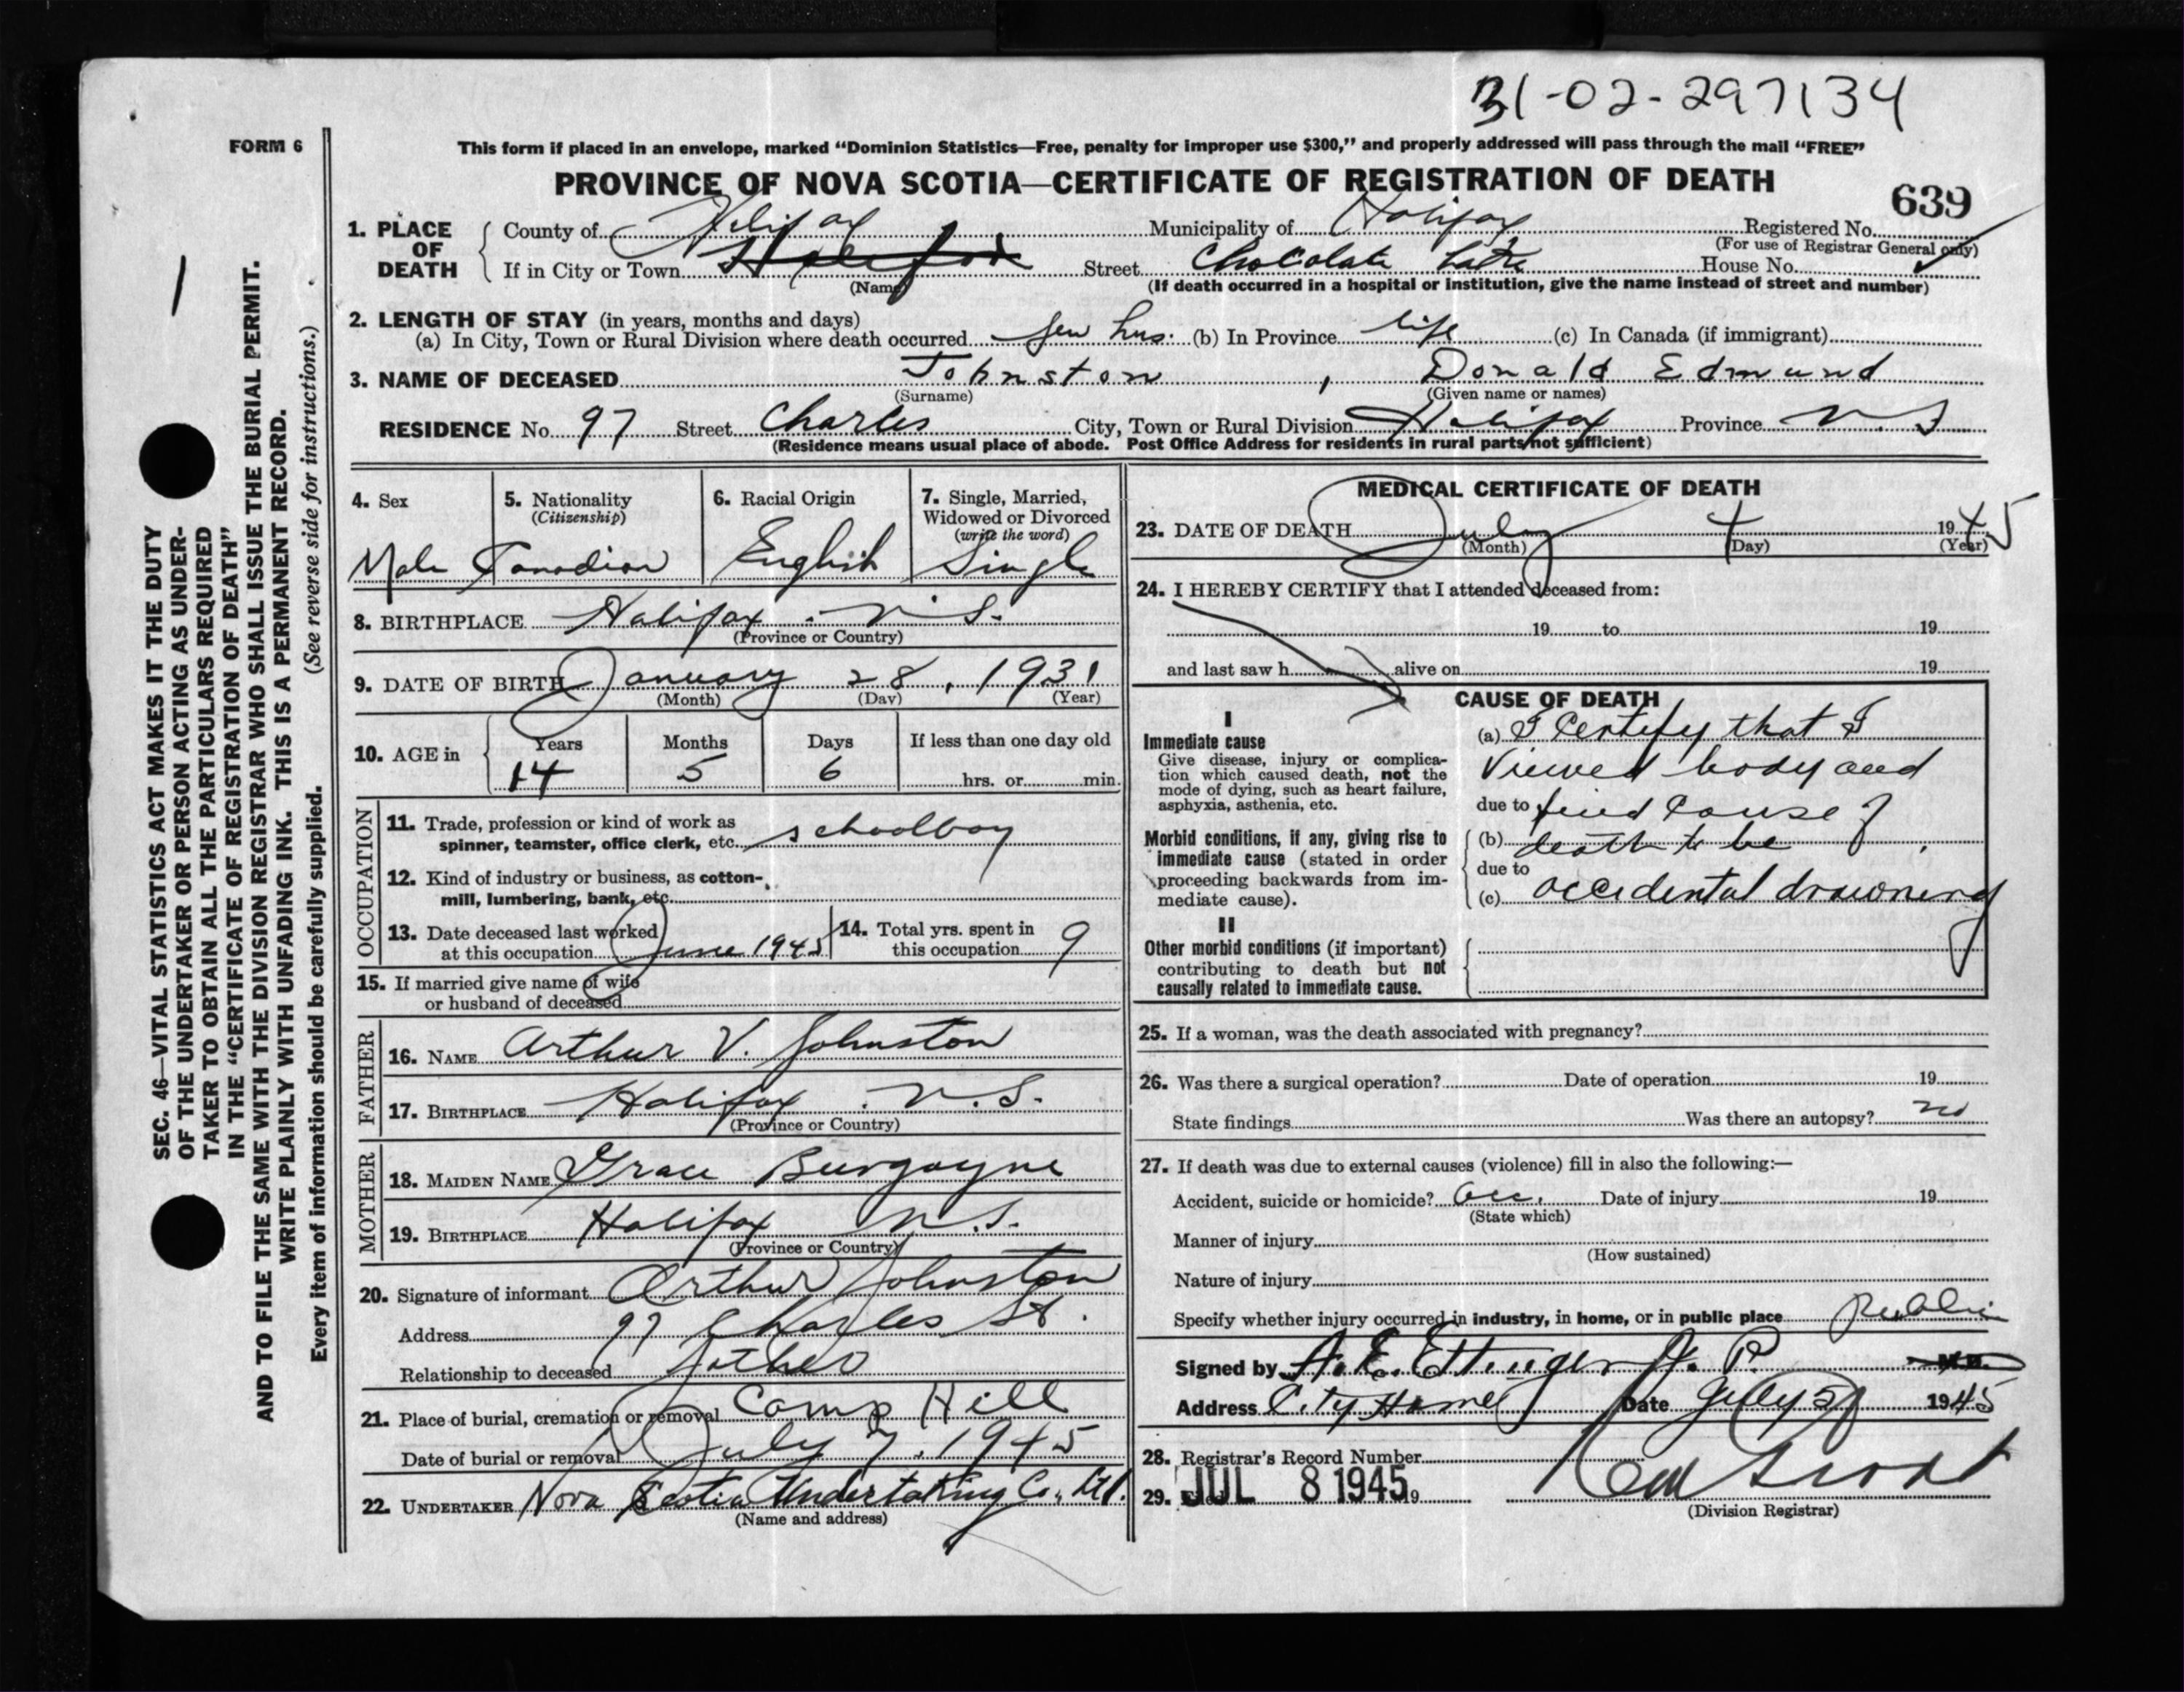 31-02-297134
FORM 6
This form if placed in an envelope, marked “Dominion Statistics—Free, penalty for improper use $300,” and properly addressed will pass through the mail “FREE”
PROVINCE OF NOVA SCOTIA—CERTIFICATE OF REGISTRATION OF DEATH
639
1. PLACE OF DEATH
County of Halifax Municipality of Halifax Registered No.
(For use of Registrar General only)
If in City or Town Halifax Street Chocolate Lake House No.
(Name)
(If death occurred in a hospital or institution, give the name instead of street and number)
2. LENGTH OF STAY (in years, months and days)
(a) In City, Town or Rural Division where death occurred few hrs. (b) In Province life (c) In Canada (if immigrant)
3. NAME OF DECEASED Johnston , Donald Edmund
(Surname) (Given name or names)
RESIDENCE No. 97 Street Charles City, Town or Rural Division Halifax Province N. S
(Residence means usual place of abode. Post Office Address for residents in rural parts not sufficient)
4. Sex
Male
5. Nationality
(Citizenship)
Canadian
6. Racial Origin
English
7. Single, Married,
Widowed or Divorced
(write the word)
Single
8. BIRTHPLACE Halifax . N. S.
(Province or Country)
9. DATE OF BIRTH January 28, 1931
(Month) (Day) (Year)
10. AGE in
Years Months Days If less than one day old
14 5 6 hrs. or min.
OCCUPATION
11. Trade, profession or kind of work as
spinner, teamster, office clerk, etc. schoolboy
12. Kind of industry or business, as cotton-
mill, lumbering, bank, etc.
13. Date deceased last worked
at this occupation June 1945
14. Total yrs. spent in
this occupation 9
15. If married give name of wife
or husband of deceased
FATHER
16. NAME Arthur V. Johnston
17. BIRTHPLACE Halifax . N. S.
(Province or Country)
MOTHER
18. MAIDEN NAME Grace Burgoyne
19. BIRTHPLACE Halifax N. S.
(Province or Country)
20. Signature of informant Arthur Johnston
Address 97 Charles St.
Relationship to deceased Father
21. Place of burial, cremation or removal Camp Hill
Date of burial or removal July 7, 1945
22. UNDERTAKER Nova Scotia Undertaking Co., Ltd.
(Name and address)
MEDICAL CERTIFICATE OF DEATH
23. DATE OF DEATH July 4 1945
(Month) (Day) (Year)
24. I HEREBY CERTIFY that I attended deceased from:
19 to 19
and last saw h alive on 19
CAUSE OF DEATH
I
Immediate cause
Give disease, injury or complica-
tion which caused death, not the
mode of dying, such as heart failure,
asphyxia, asthenia, etc.
Morbid conditions, if any, giving rise to
immediate cause (stated in order
proceeding backwards from im-
mediate cause).
(a) I Certify that I
viewed body and
due to find Cause of
(b) death to be
due to
(c) accidental drowning
II
Other morbid conditions (if important)
contributing to death but not
causally related to immediate cause.
25. If a woman, was the death associated with pregnancy?
26. Was there a surgical operation? Date of operation 19
State findings Was there an autopsy? no
27. If death was due to external causes (violence) fill in also the following:—
Accident, suicide or homicide? Acc. Date of injury 19
(State which)
Manner of injury
(How sustained)
Nature of injury
Specify whether injury occurred in industry, in home, or in public place Public
Signed by A. E. Ettinger J. P. M.D.
Address City Home Date July 5 1945
28. Registrar's Record Number
29. JUL 8 1945 19
(Division Registrar)
SEC. 46—VITAL STATISTICS ACT MAKES IT THE DUTY
OF THE UNDERTAKER OR PERSON ACTING AS UNDER-
TAKER TO OBTAIN ALL THE PARTICULARS REQUIRED
IN THE “CERTIFICATE OF REGISTRATION OF DEATH”
AND TO FILE THE SAME WITH THE DIVISION REGISTRAR WHO SHALL ISSUE THE BURIAL PERMIT.
WRITE PLAINLY WITH UNFADING INK. THIS IS A PERMANENT RECORD.
Every item of information should be carefully supplied. (See reverse side for instructions.)